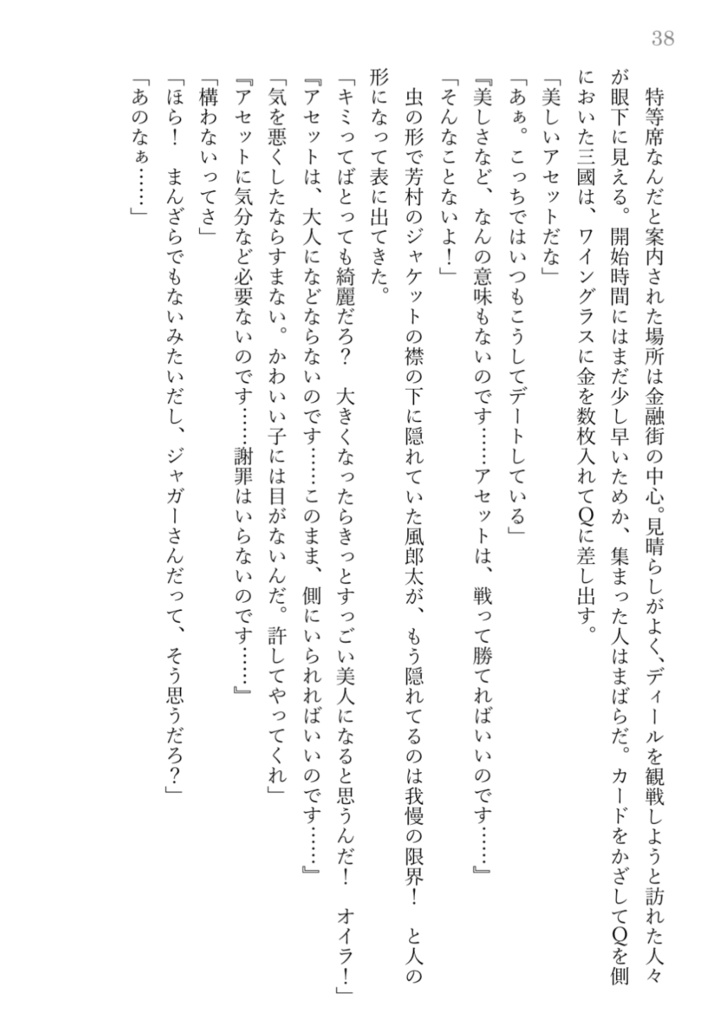 38
　特等席なんだと案内された場所は金融街の中心。見晴らしがよく、ディールを観戦しようと訪れた人々
が眼下に見える。開始時間にはまだ少し早いためか、集まった人はまばらだ。カードをかざしてQを側
においた三國は、ワイングラスに金を数枚入れてQに差し出す。
「美しいアセットだな」
「あぁ。こっちではいつもこうしてデートしている」
『美しさなど、なんの意味もないのです……アセットは、戦って勝てればいいのです……』
「そんなことないよ！」
　虫の形で芳村のジャケットの襟の下に隠れていた風郎太が、もう隠れてるのは我慢の限界！　と人の
形になって表に出てきた。
「キミってばとっても綺麗だろ？　大きくなったらきっとすっごい美人になると思うんだ！　オイラ！」
『アセットは、大人になどならないのです……このまま、側にいられればいいのです……』
「気を悪くしたならすまない。かわいい子には目がないんだ。許してやってくれ」
『アセットに気分など必要ないのです……謝罪はいらないのです……』
「構わないってさ」
「ほら！　まんざらでもないみたいだし、ジャガーさんだって、そう思うだろ？」
「あのなぁ……」